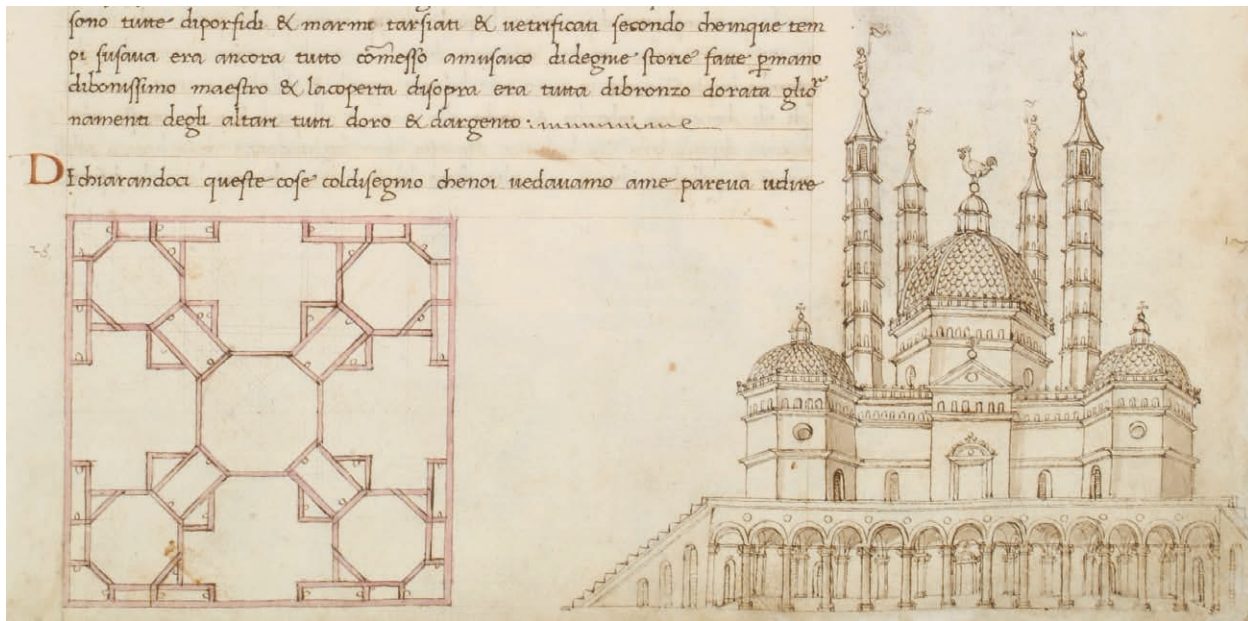 sono tutte diporfidi & marmi tarsiati & uetrificati secondo cheinque tem
pi susaua era ancora tutto com̄esso amusaico didegnie storie fatte ꝑmano
dibonissimo maestro & lacoperta disopra era tutta dibronzo dorata glior
namenti degli altari tutti doro & dargento:
DIchiarandoci queste cose coldisegnio chenoi uedauamo ame pareua udire